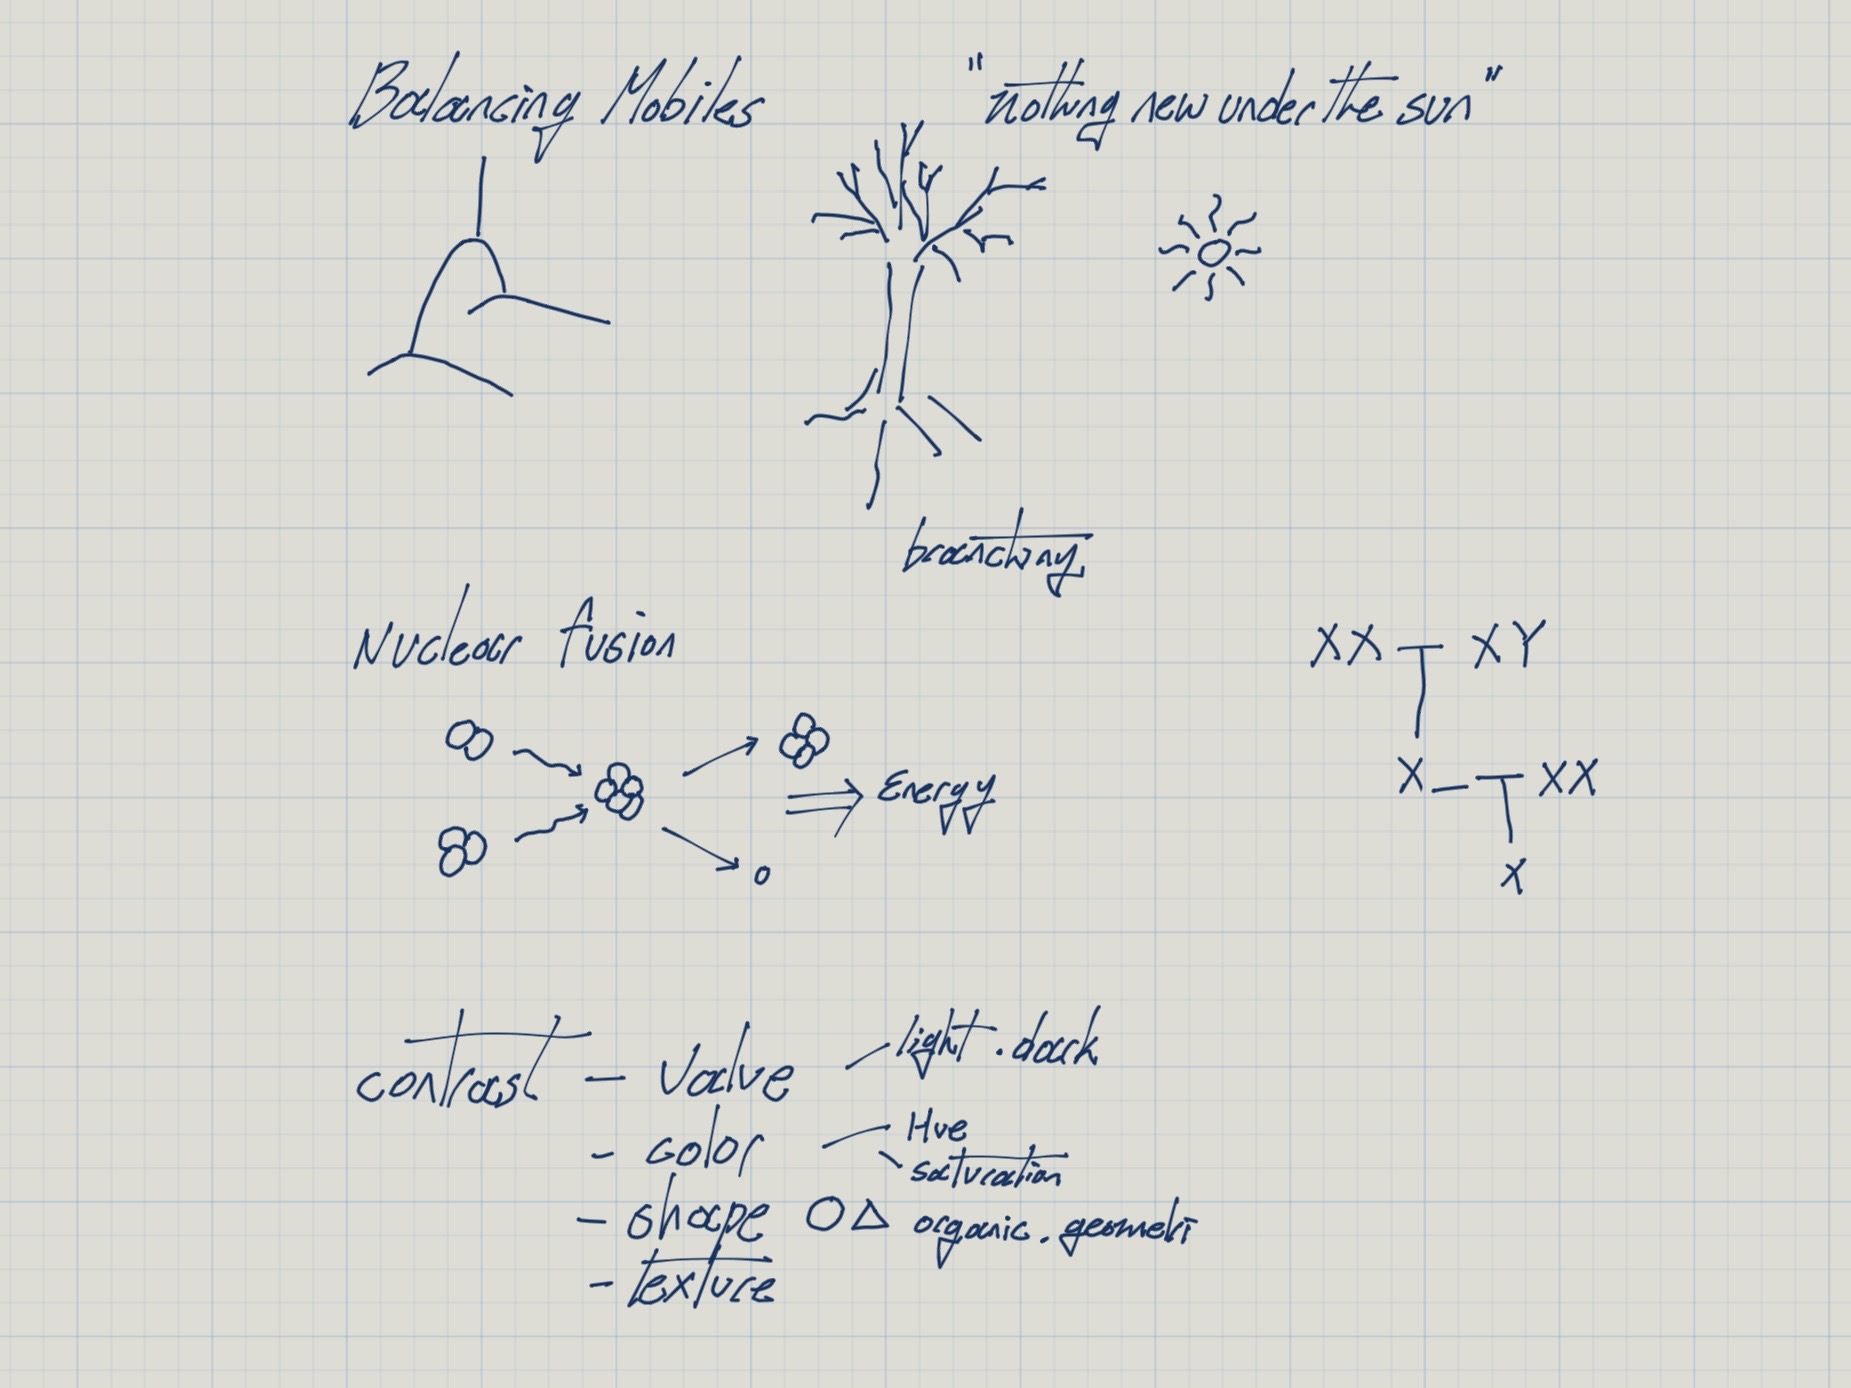 Balancing Mobiles
"nothing new under the sun"
branching
Nuclear fusion
XX XY
X_ XX
X
Energy
contrast - Value light . dark
- color Hue
saturation
- shape organic . geometi
- texture